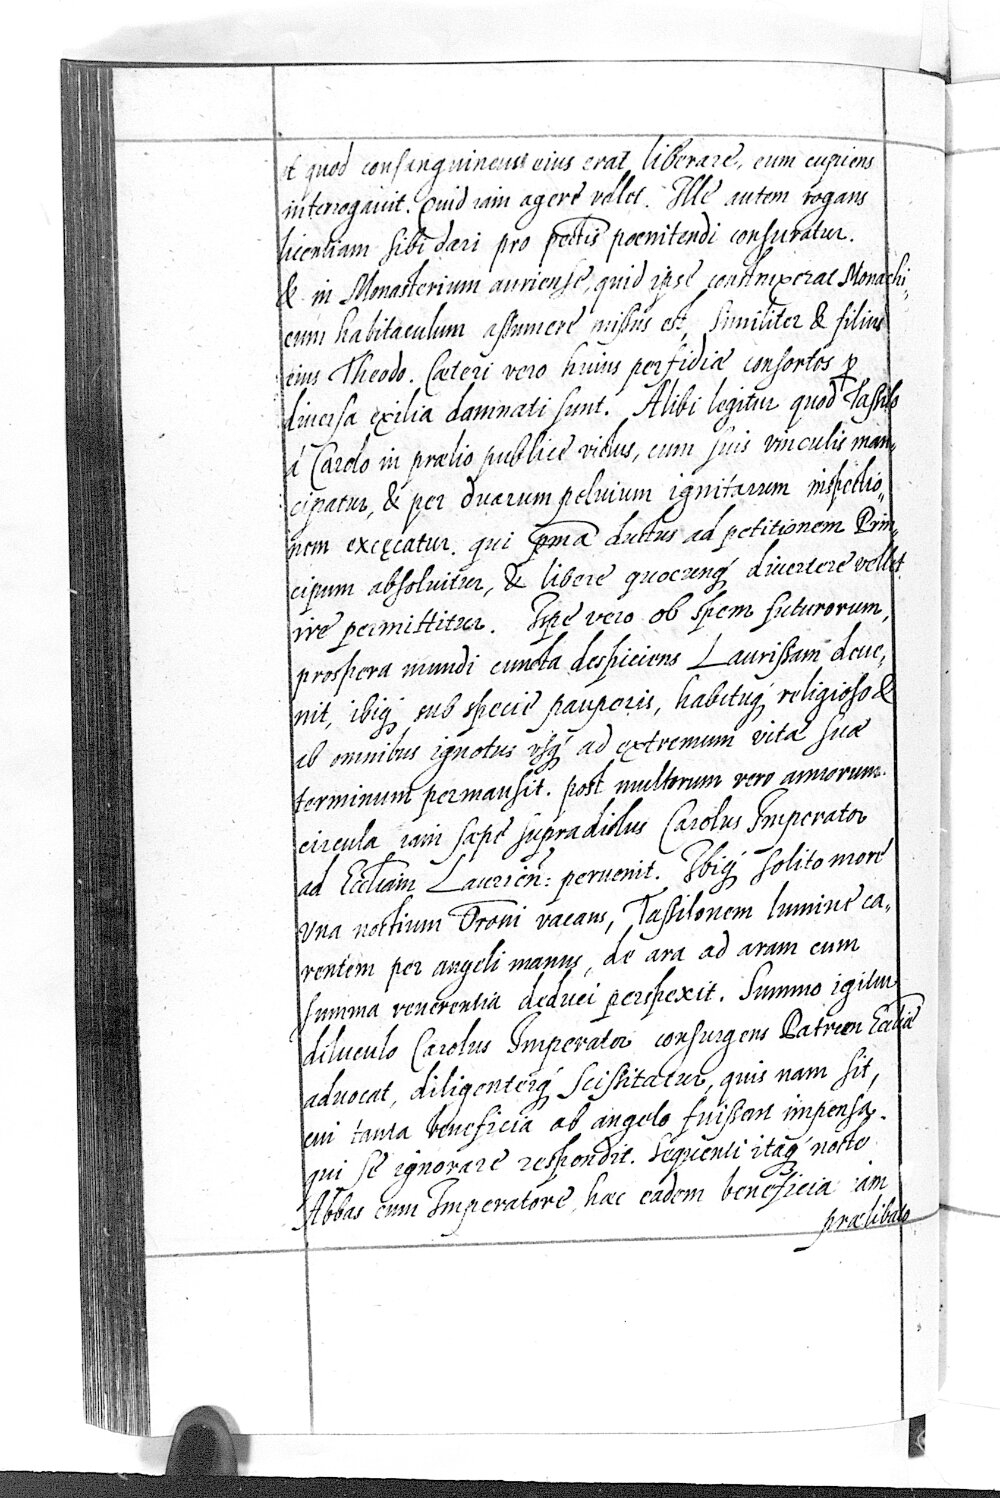 et quod consanguineus eius erat, liberare, eum cupiens
interrogauit. Quid iam agere vellet. Ille autem rogans
licentiam sibi dari pro pecctis poenitendi consuratur.
& in Monasterium auriense, quid ipse construxerat Monachi,,
cum habitaculum assumere missus est, similiter & filius
eius Theodo. Cæteri vero huius perfidiæ consortes p
diuersa exilia damnati sunt. Alibi legitur quod Tassilo
á Carolo in prælio publice victus, cum suis vinculis man,,
cipatur, & per duarum peluium ignitarum inspectio,,
nem excęcatur. qui pma ductus ad petitionem Prin,,
cipum absoluitur, & libere quocunq́ diuertere vellet
ire permittitur. Ipse vero ob spem futurorum,
prospera mundi cuncta despiciens Laurissam deue,,
nit, ibiq́ sub specie pauperis, habituq́ religioso &
ab omnibus ignotus vsq́ ad extremum vitæ suæ
terminum permansit. post multorum vero annorum
circula iam sæpe supradictus Carolus Imperator
ad Eccliam Laurień: peruenit. Ibiq́ solito more
vna noctium Oroni vacans, Tassilonem lumine ca,,
rentem per angeli manus, de ara ad aram cum
summa reuerentia deduci perspexit. Summo igitur
diluculo Carolus Imperator consurgens Patrem Eccliæ
aduocat, diligenterq́ scissitatur, quis nam sit,
cui tanta beneficia ab angelo fuissent impensa.
qui se ignorare respondit. sequenti itaq́ nocte
Abbas cum Imperatore hæc eadem beneficia iam
prælibato